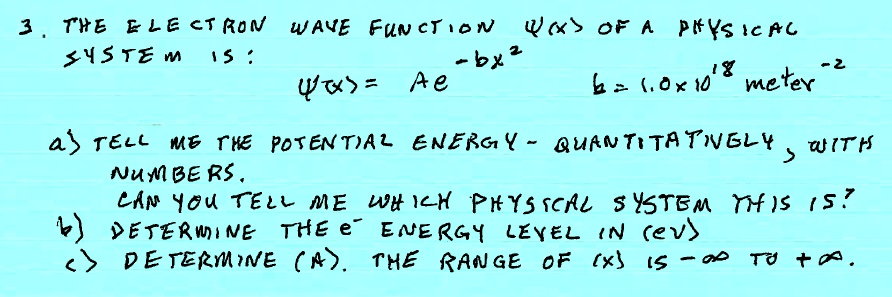 3. THE ELECTRON WAVE FUNCTION ψ(x) OF A PHYSICAL
SYSTEM IS:
ψ(x) = Ae^{-bx^2} b = 1.0 x 10^{18} meter^{-2}
a) TELL ME THE POTENTIAL ENERGY - QUANTITATIVELY, WITH
NUMBERS.
CAN YOU TELL ME WHICH PHYSICAL SYSTEM THIS IS?
b) DETERMINE THE e^- ENERGY LEVEL IN (eV)
c) DETERMINE (A). THE RANGE OF (x) IS -∞ TO +∞.